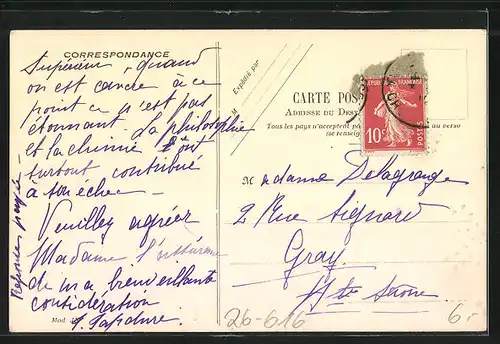 CORRESPONDANCE
Supérieur, quand
on est cancre à ce
point ce n'est pas
étonnant la philosophie
et la chimie ont
surtout contribué
à son échec
Veuillez agréer
Madame l'
de ma bienveillante
considération
Réponse payée
Expédié par
M
CARTE POS
ADRESSE DU DEST
Tous les pays n'acceptent pas au verso
(se renseig
REPUBLIQUE FRANÇAISE
10c
POSTES
Madame Delagrange
2 Rue Signard
Gray
Hte Saône
26-616
6.-